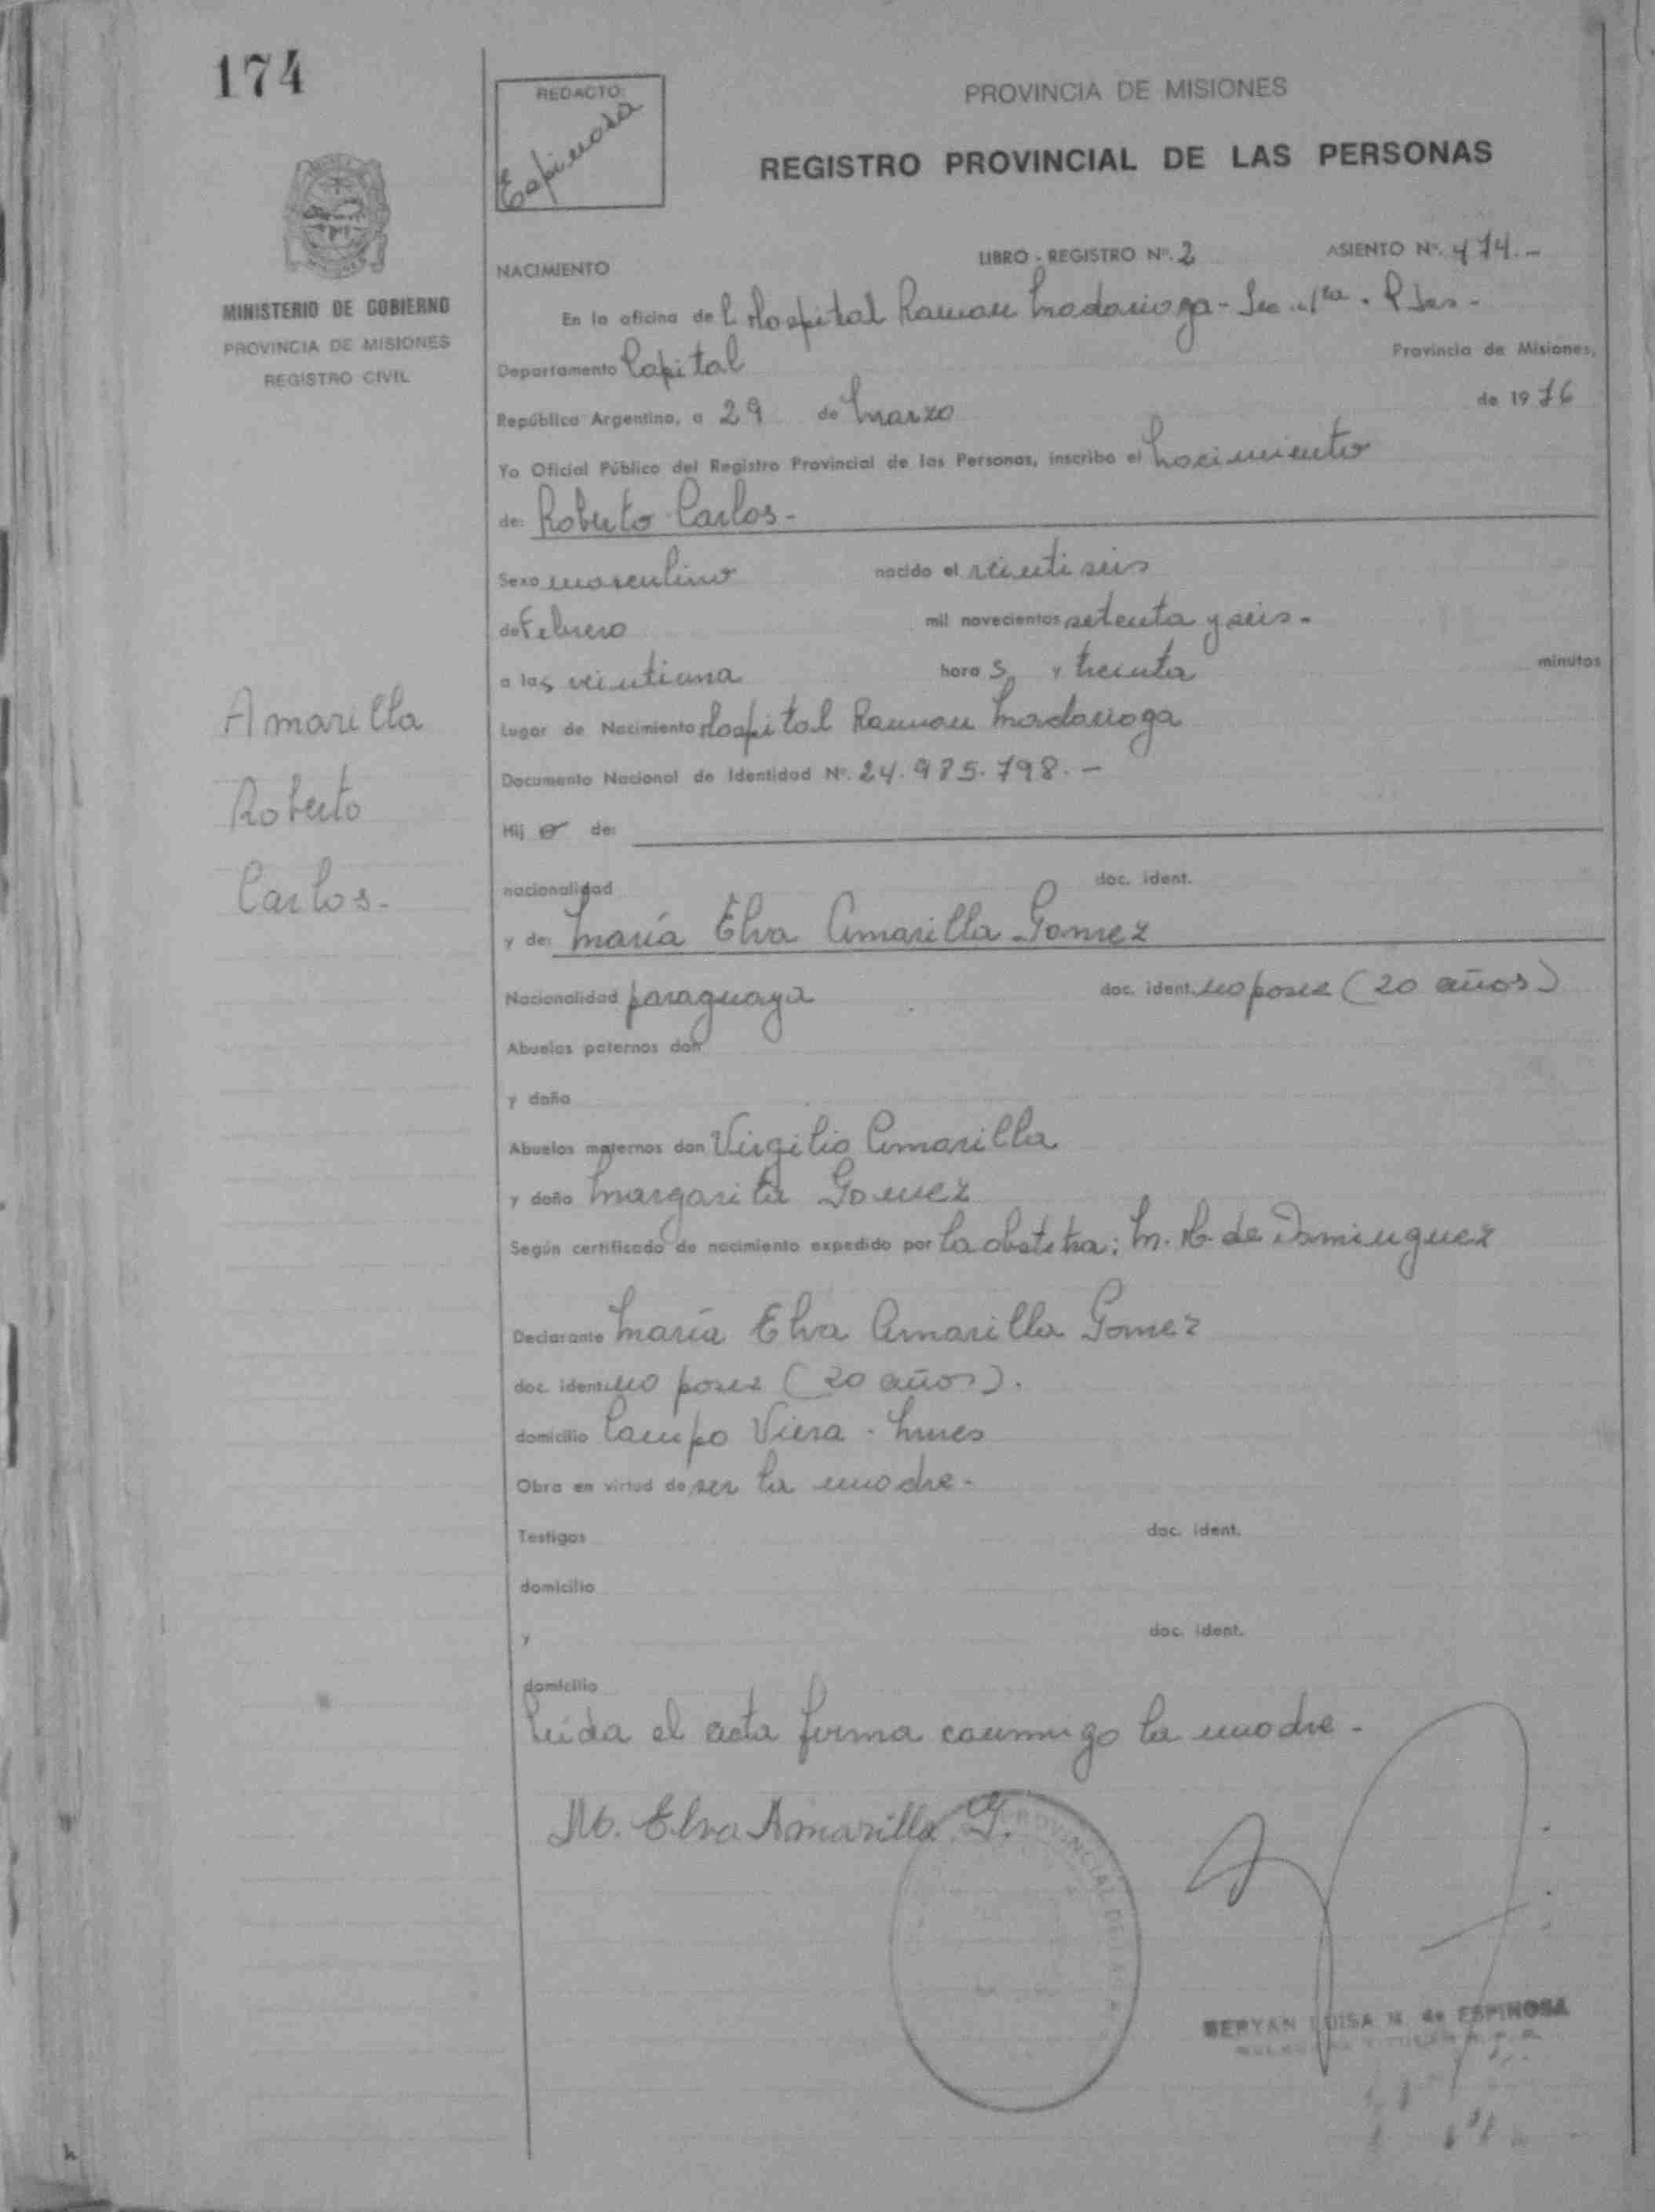 174
REDACTO:
Espinosa
PROVINCIA DE MISIONES
REGISTRO PROVINCIAL DE LAS PERSONAS
MINISTERIO DE GOBIERNO
PROVINCIA DE MISIONES
REGISTRO CIVIL
NACIMIENTO
LIBRO - REGISTRO Nº. 2
ASIENTO Nº. 474.-
En la oficina del Hospital Ramon Madariaga - Sec. 1ra. Pdas -
Departamento Capital
Provincia de Misiones,
República Argentina, a 29 de Marzo de 1976
Yo Oficial Público del Registro Provincial de las Personas, inscribo el Nacimiento
de: Roberto Carlos -
Sexo masculino nacido el veintiseis
de Febrero mil novecientos setenta y seis -
a las veintiuna hora s y treinta minutos
Lugar de Nacimiento Hospital Ramon Madariaga
Documento Nacional de Identidad Nº. 24.985.798.-
Hij o de:
nacionalidad doc. ident.
y de: María Elva Amarilla Gomez
Nacionalidad paraguaya doc. ident. no posee (20 años)
Abuelos paternos don
y doña
Abuelos maternos don Virgilio Amarilla
y doña Margarita Gomez
Según certificado de nacimiento expedido por la obstetra: M. H. de Dominguez
Declarante María Elva Amarilla Gomez
doc. ident. no posee (20 años).
domicilio Campo Viera - Mnes
Obra en virtud de ser la madre -
Testigos doc. ident.
domicilio
y doc. ident.
domicilio
Leída el acta firma conmigo la madre -
M. Elva Amarilla G.
PROVINCIAL DE LAS
LUISA N. de ESPINOSA
Amarilla
Roberto
Carlos -